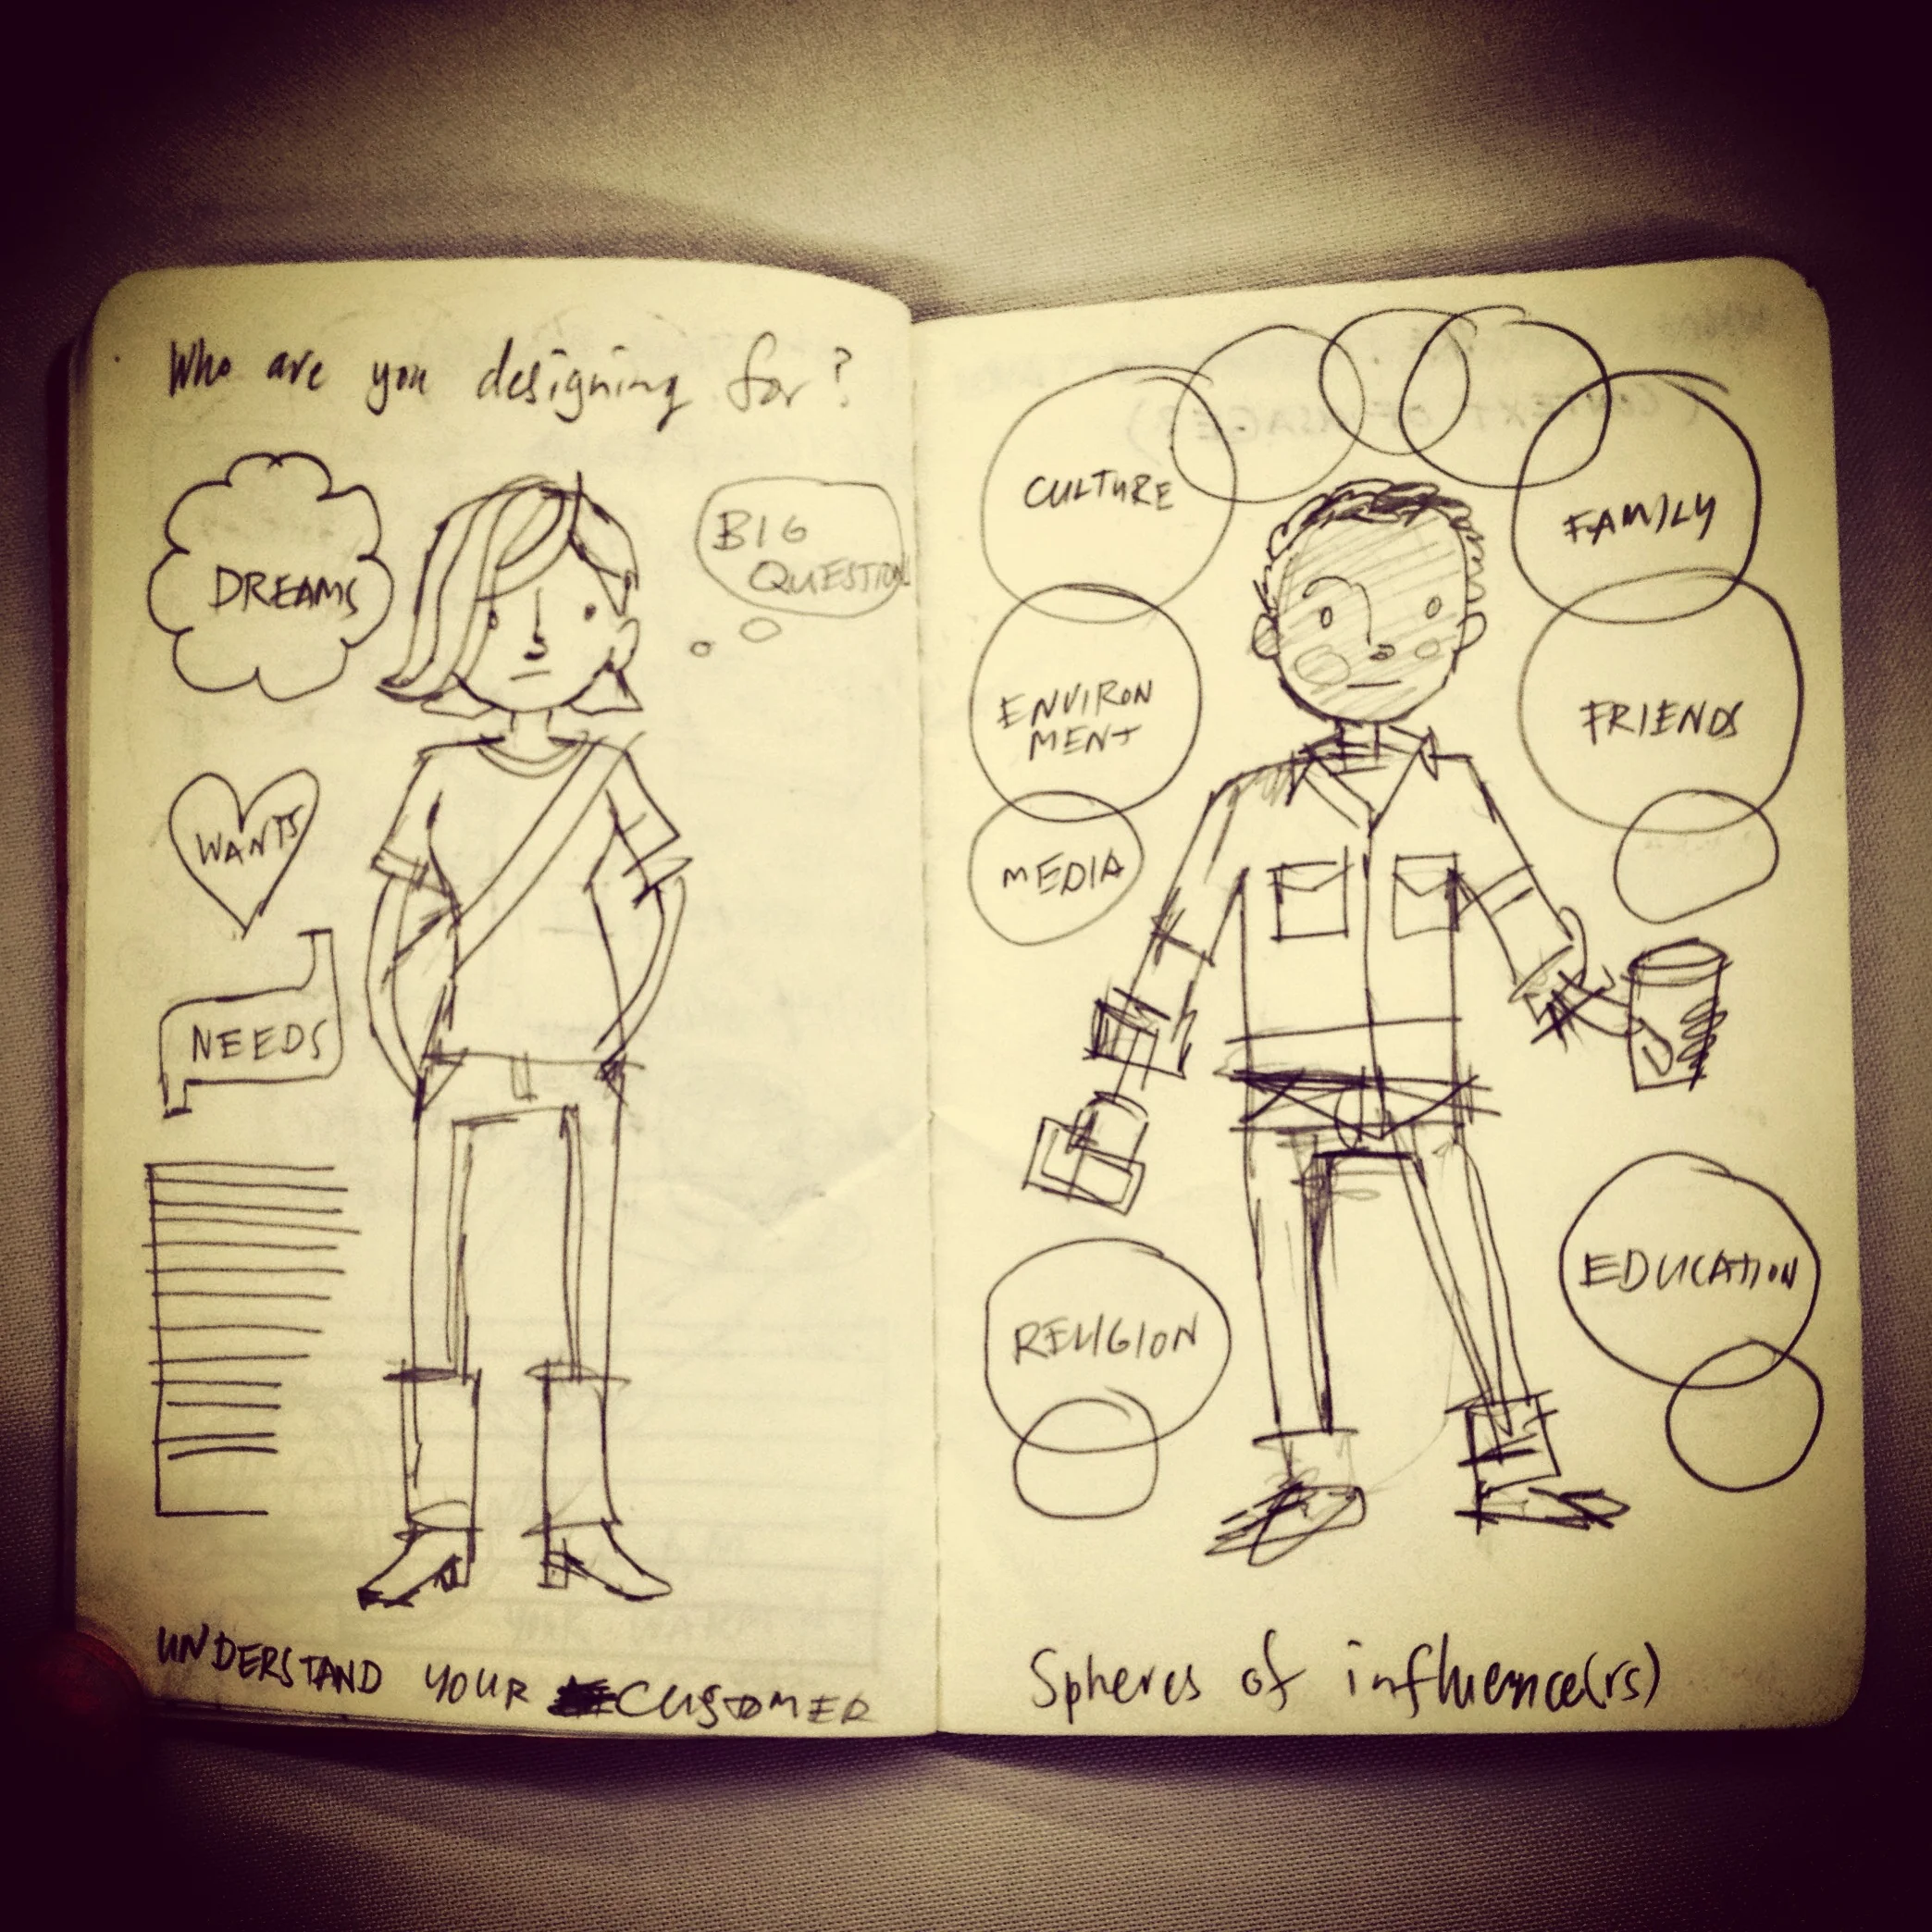 Who are you designing for?
DREAMS
BIG
QUESTION
WANTS
NEEDS
UNDERSTAND YOUR CUSTOMER
CULTURE
FAMILY
ENVIRON
MENT
FRIENDS
MEDIA
RELIGION
EDUCATION
Spheres of influence(rs)